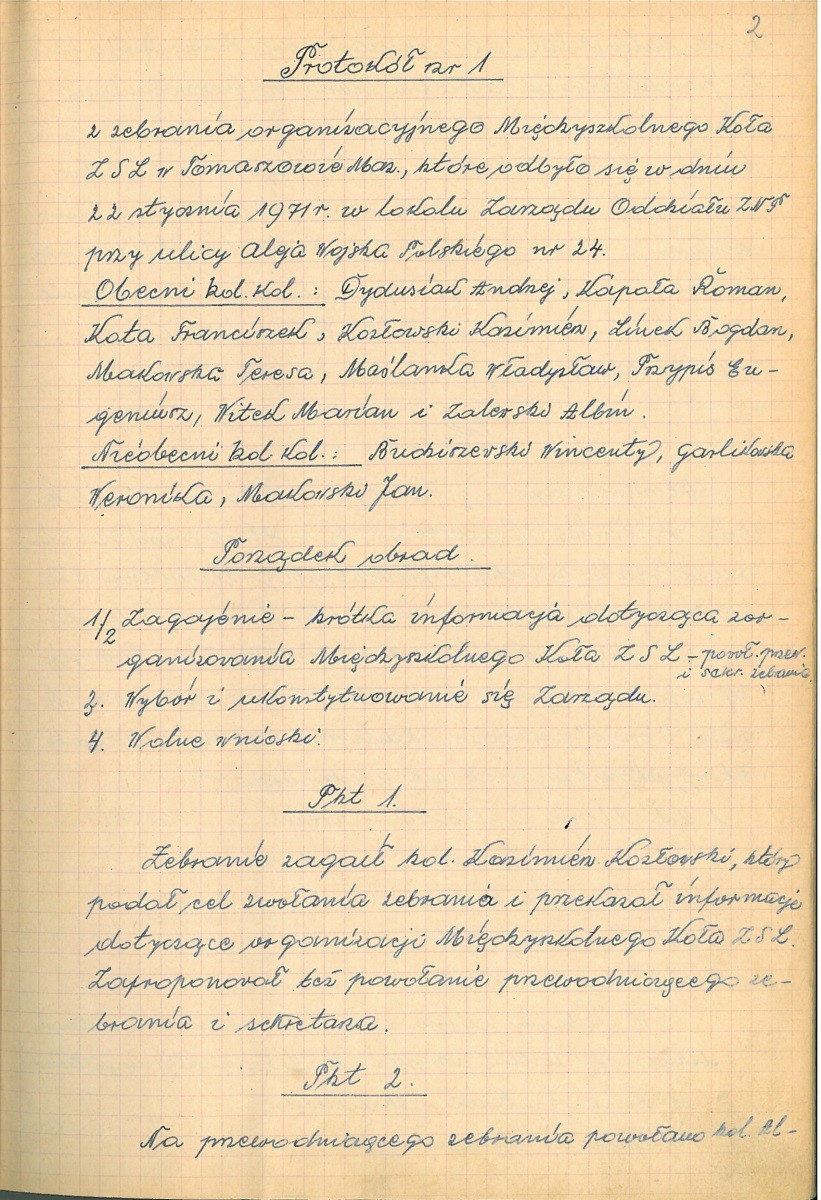 2
Protokół nr 1
z zebrania organizacyjnego Międzyszkolnego Koła
ZSL w Tomaszowie Maz., które odbyło się w dniu
22 stycznia 1971 r. w lokalu Zarządu Oddziału ZNP
przy ulicy Aleja Wojska Polskiego nr 24.
Obecni kol. kol.: Dydusiak Andrzej, Kapała Roman,
Kata Franciszek, Kozłowski Kazimierz, Linek Bogdan,
Makowska Teresa, Maślanka Władysław, Przypis Eu-
geniusz, Witek Marian i Zalewski Albin.
Nieobecni kol. kol.: Budziszewski Wincenty, Garlikowska
Weronika, Makowski Jan.
Porządek obrad.
1/2 Zagajenie – krótka informacja dotycząca zor-
ganizowania Międzyszkolnego Koła ZSL – powoł. przew.
i sekr. zebrania
3. Wybór i ukonstytuowanie się Zarządu.
4. Wolne wnioski.
Pkt 1.
Zebranie zagaił kol. Kazimierz Kozłowski, który
podał cel zwołania zebrania i przekazał informacje
dotyczące organizacji Międzyszkolnego Koła ZSL.
Zaproponował też powołanie przewodniczącego ze-
brania i sekretarza.
Pkt 2.
Na przewodniczącego zebrania powołano kol. Al-